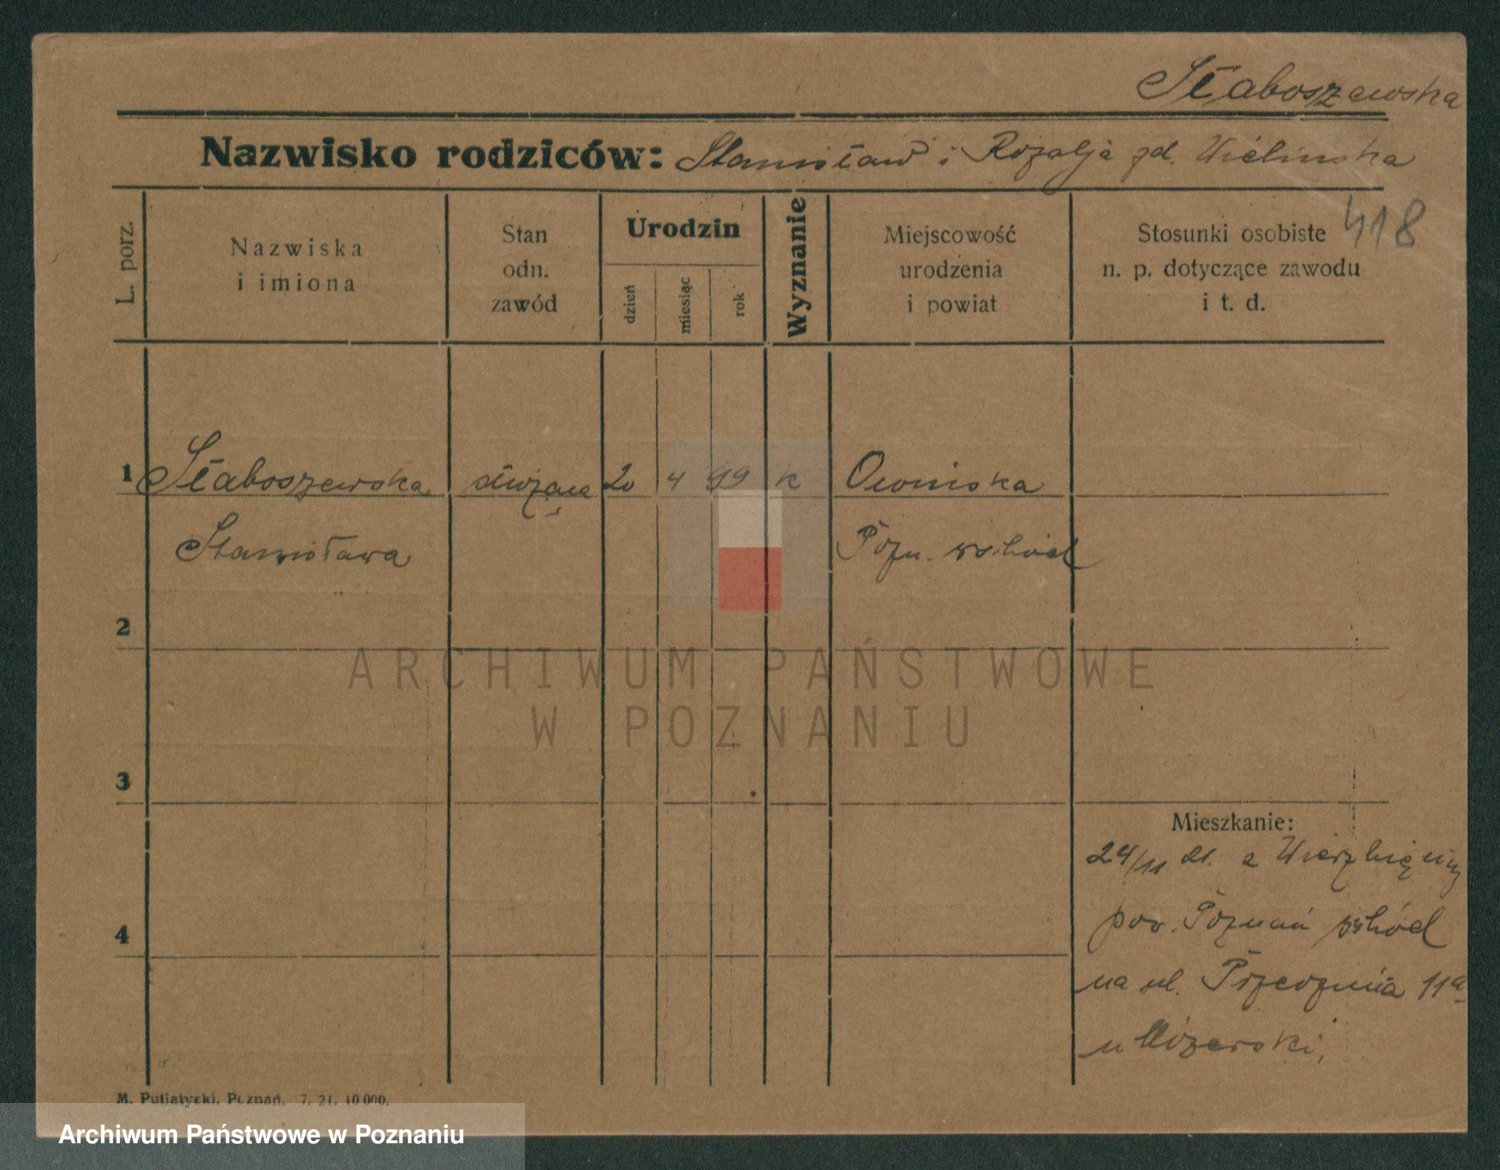 Słaboszewska
Nazwisko rodziców: Stanisław i Rozalja zd. Wielinska
418
L. porz.
Nazwiska
i imiona
Stan
odn.
zawód
Urodzin
dzień
miesiąc
rok
Wyznanie
Miejscowość
urodzenia
i powiat
Stosunki osobiste
n. p. dotyczące zawodu
i t. d.
1 Słaboszewska służąca 20 4 99 k Owinska
Stanisława Pozn. wschód
2
ARCHIWUM PAŃSTWOWE
W POZNANIU
3
Mieszkanie:
24/11 21. z
4
pow. Poznań wschód
na ul. Przecznia 11a
u Mizerski,
M. Putiatycki, Poznań, 7. 21. 10 000.
Archiwum Państwowe w Poznaniu